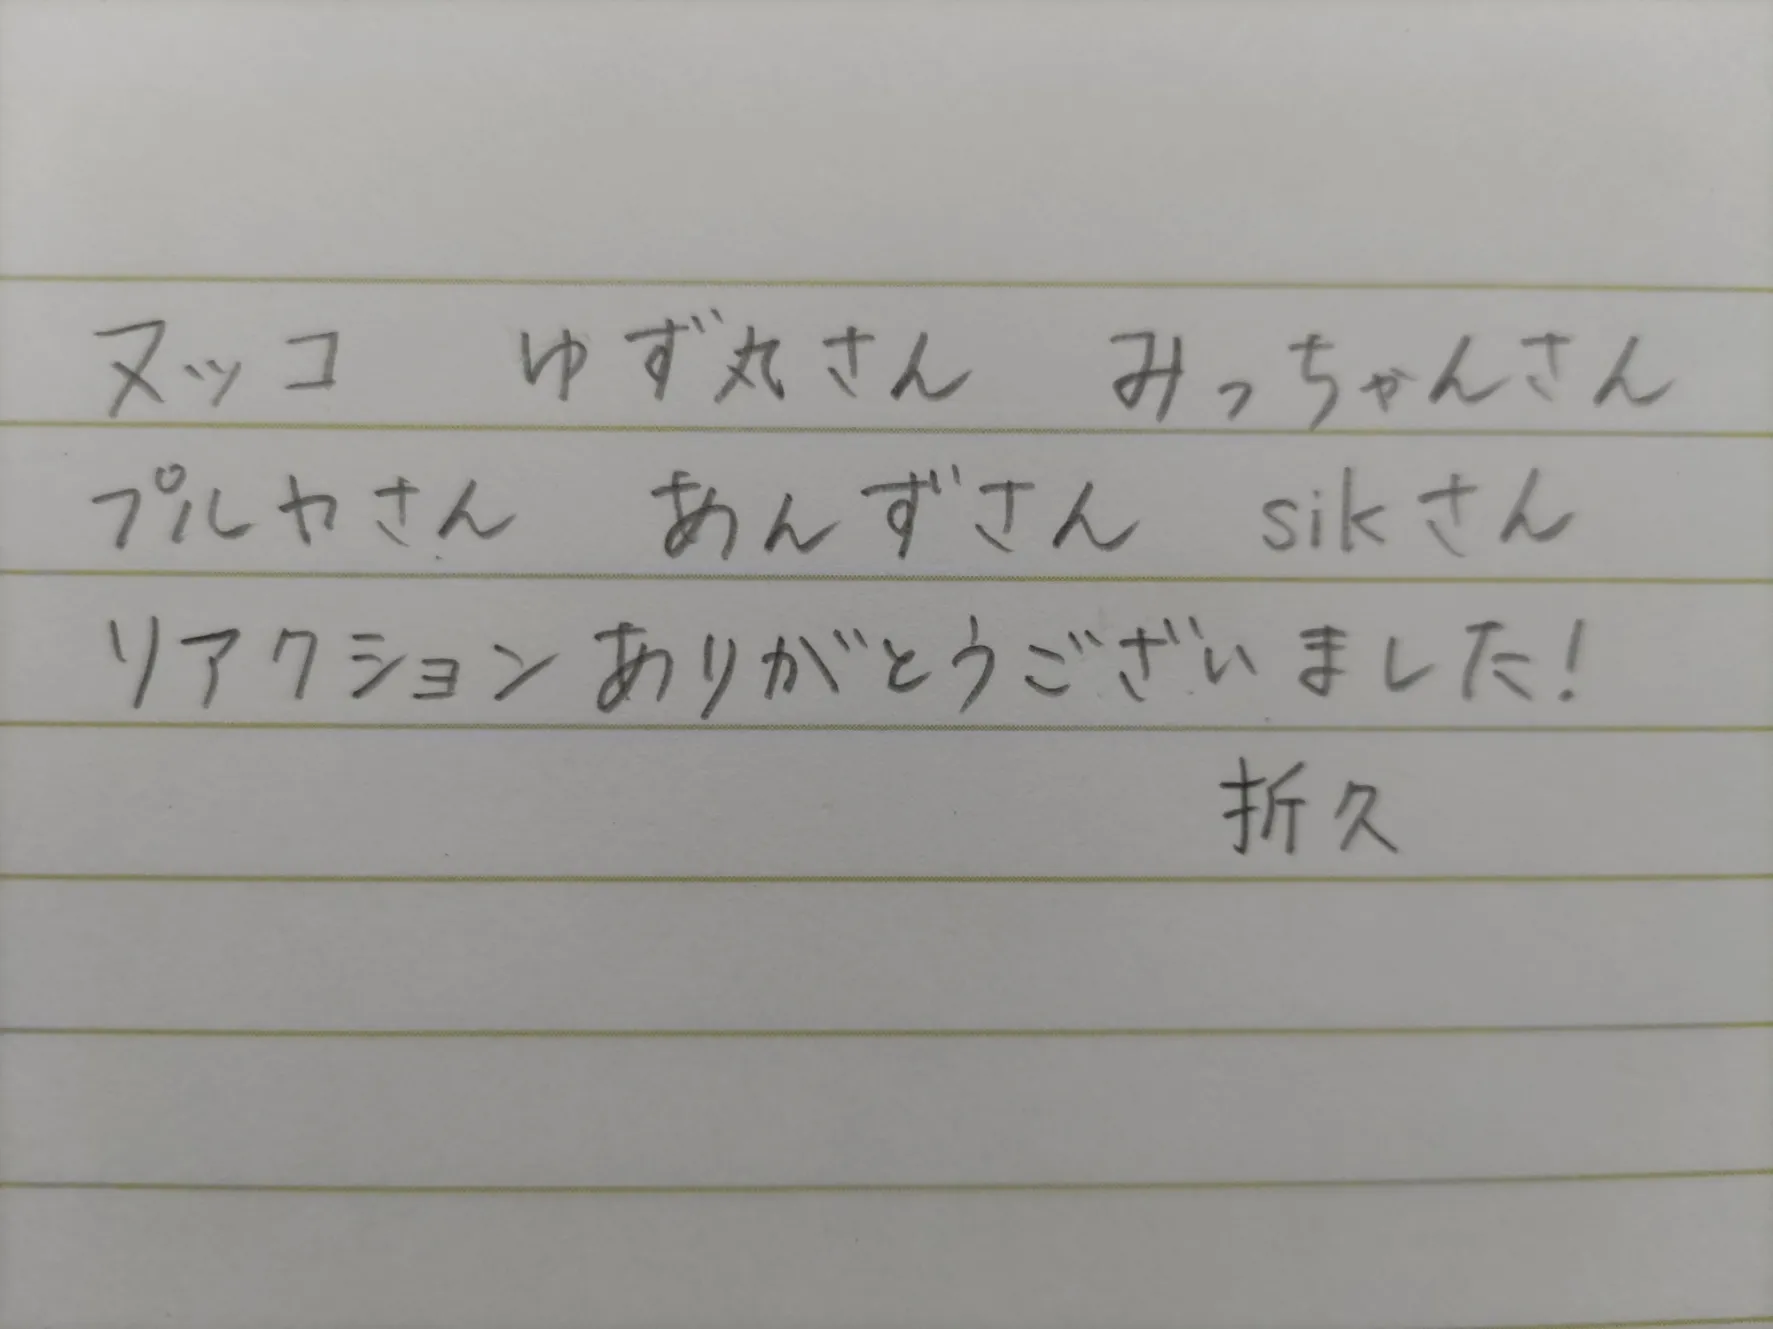 ヌッコ　ゆず丸さん　みっちゃんさん
プルヤさん　あんずさん　sikさん
リアクションありがとうございました！
折久